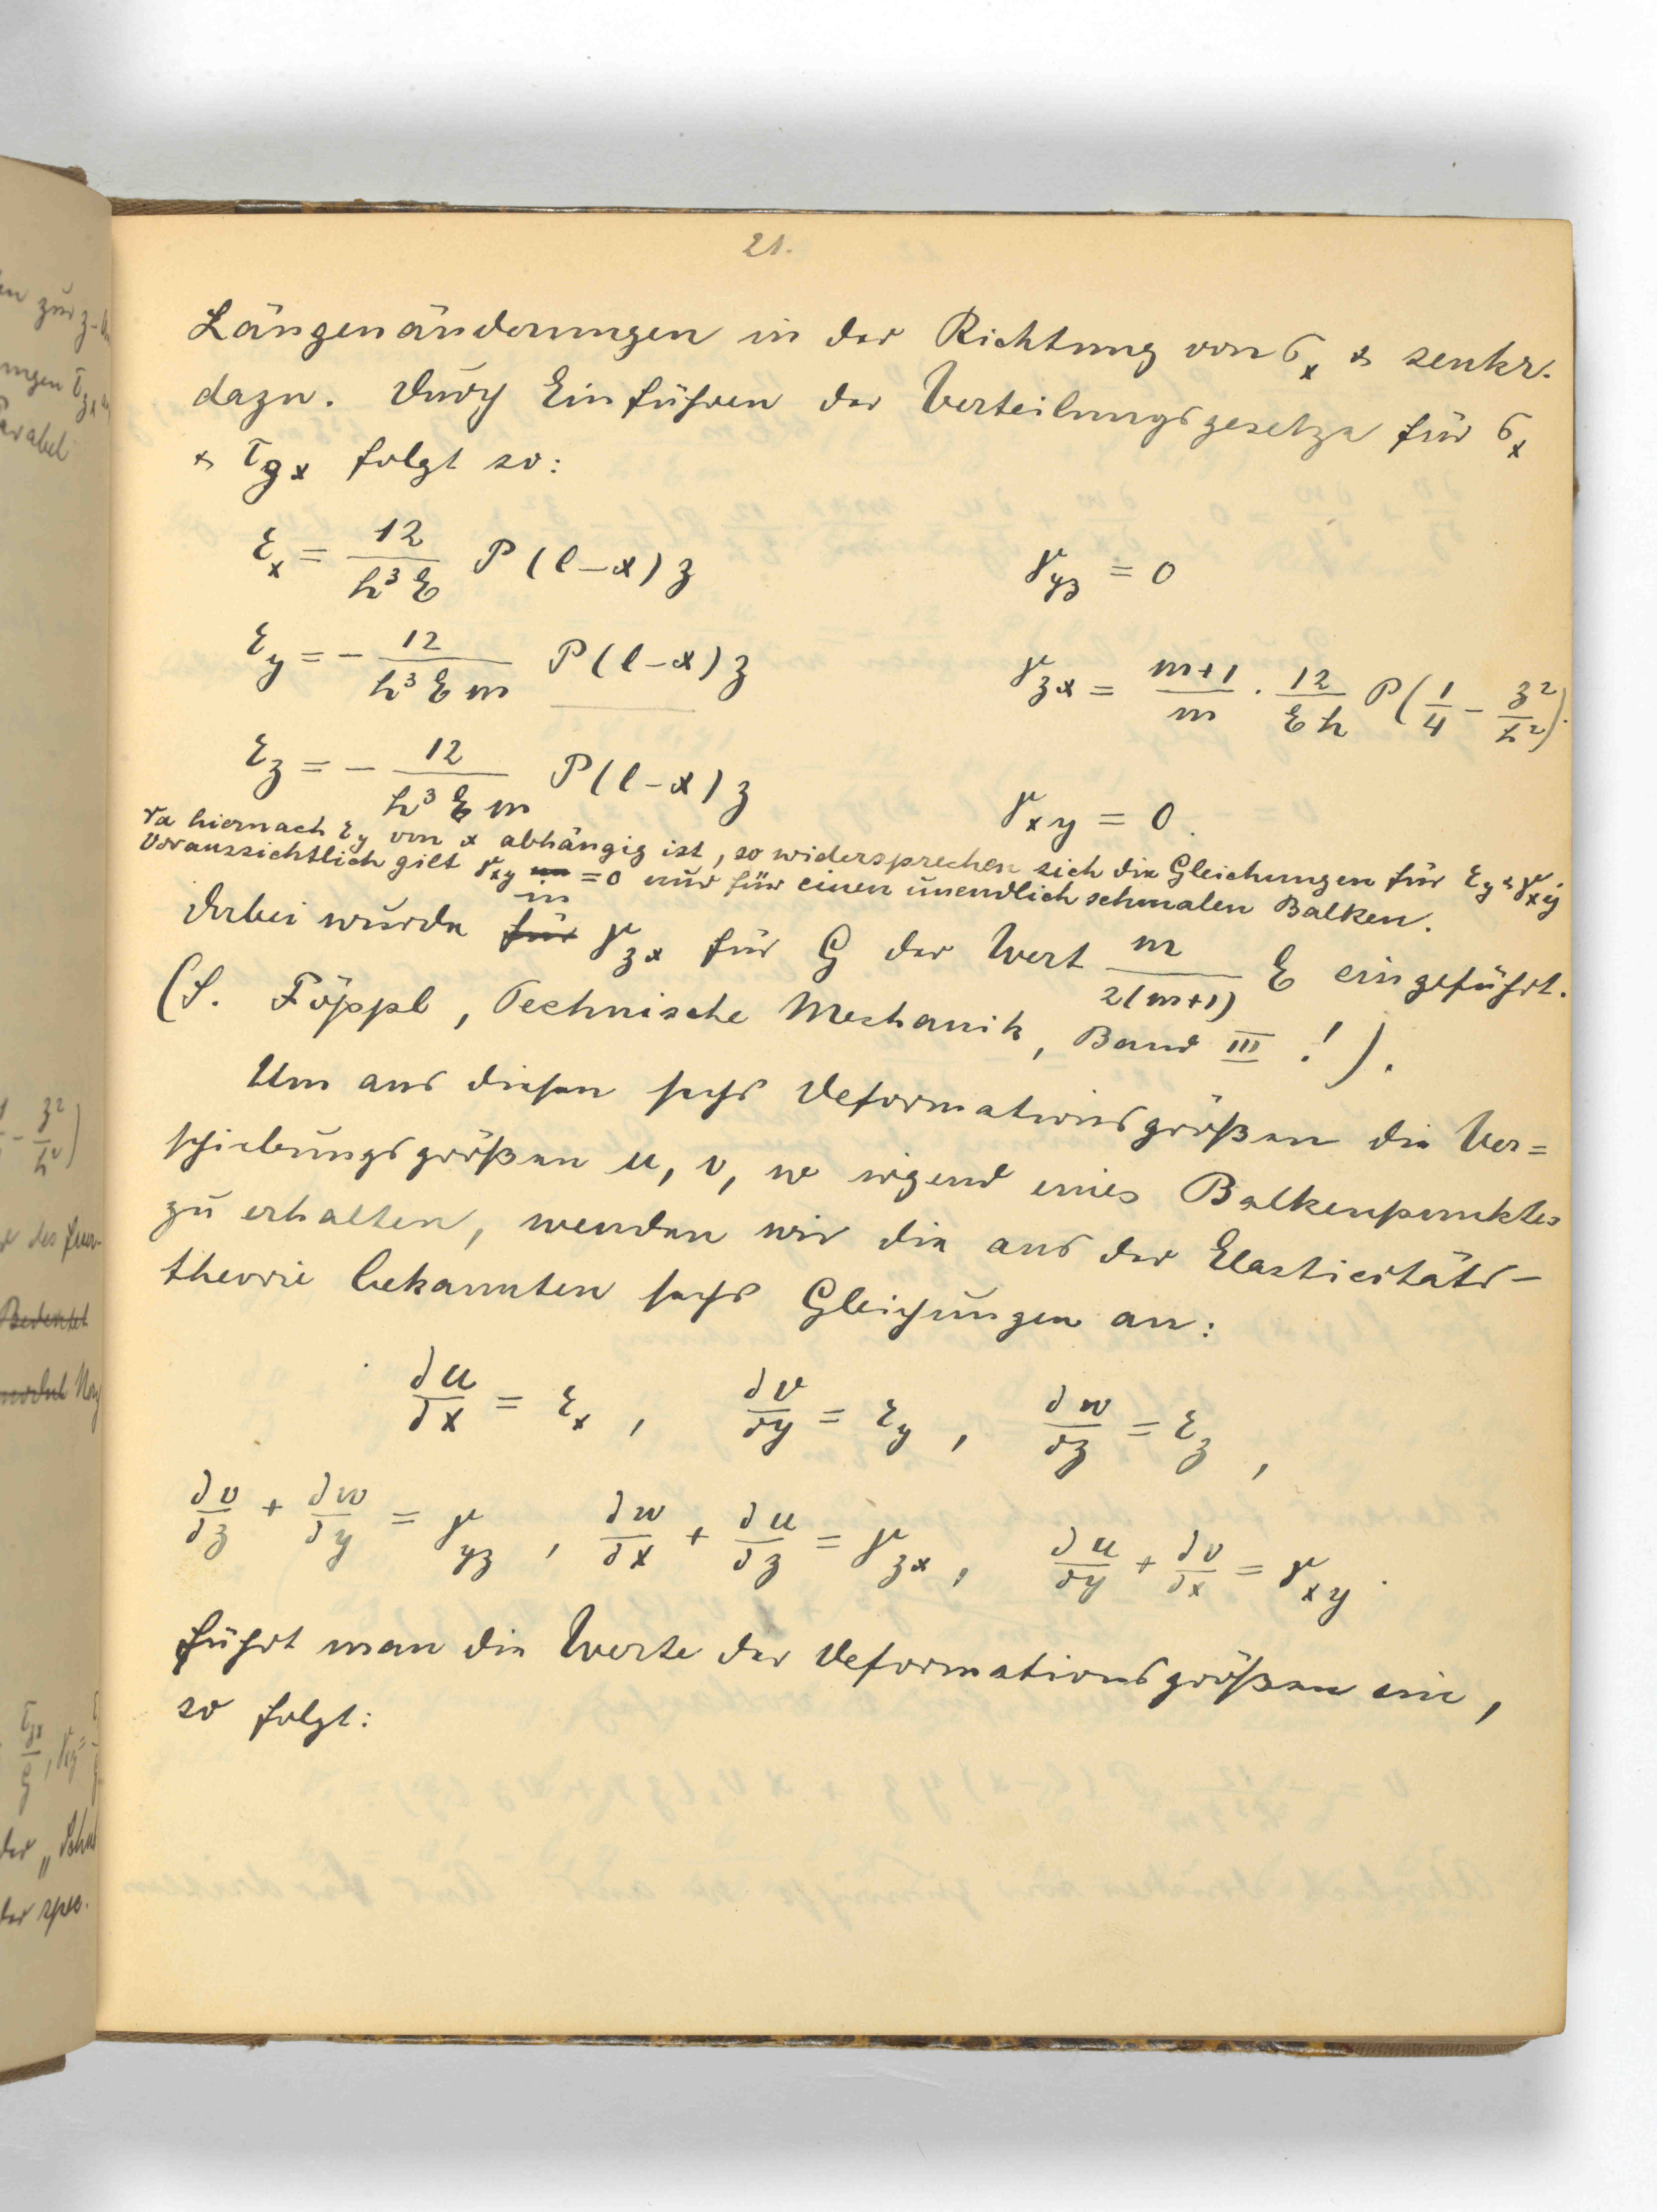 21.
Längenänderungen in der Richtung von σₓ & senkr.
dazu. Durch Einführen der Verteilungsgesetze für σₓ
& τ_zx folgt so:
ε_x = 12/(h³E) P(l-x)z    γ_yz = 0
ε_y = - 12/(h³Em) P(l-x)z    γ_zx = (m+1)/m · 12/(Eh) P(1/4 - z²/h²).
ε_z = - 12/(h³Em) P(l-x)z    γ_xy = 0.
Da hiernach ε_y von x abhängig ist, so widersprechen sich die Gleichungen für ε_y & γ_xy
Voraussichtlich gilt γ_xy = 0 nur für einen unendlich schmalen Balken.
Dabei wurde für in γ_zx für G der Wert m/(2(m+1)) E eingeführt.
(S. Föppl, Technische Mechanik, Band III !).
Um aus diesen sechs Deformationsgrößen die Ver=
schiebungsgrößen u, v, w irgend eines Balkenpunktes
zu erhalten, wenden wir die aus der Elasticitäts-
theorie bekannten sechs Gleichungen an:
∂u/∂x = ε_x , ∂v/∂y = ε_y , ∂w/∂z = ε_z ,
∂v/∂z + ∂w/∂y = γ_yz , ∂w/∂x + ∂u/∂z = γ_zx , ∂u/∂y + ∂v/∂x = γ_xy .
Führt man die Werte der Deformationsgrößen ein,
so folgt: